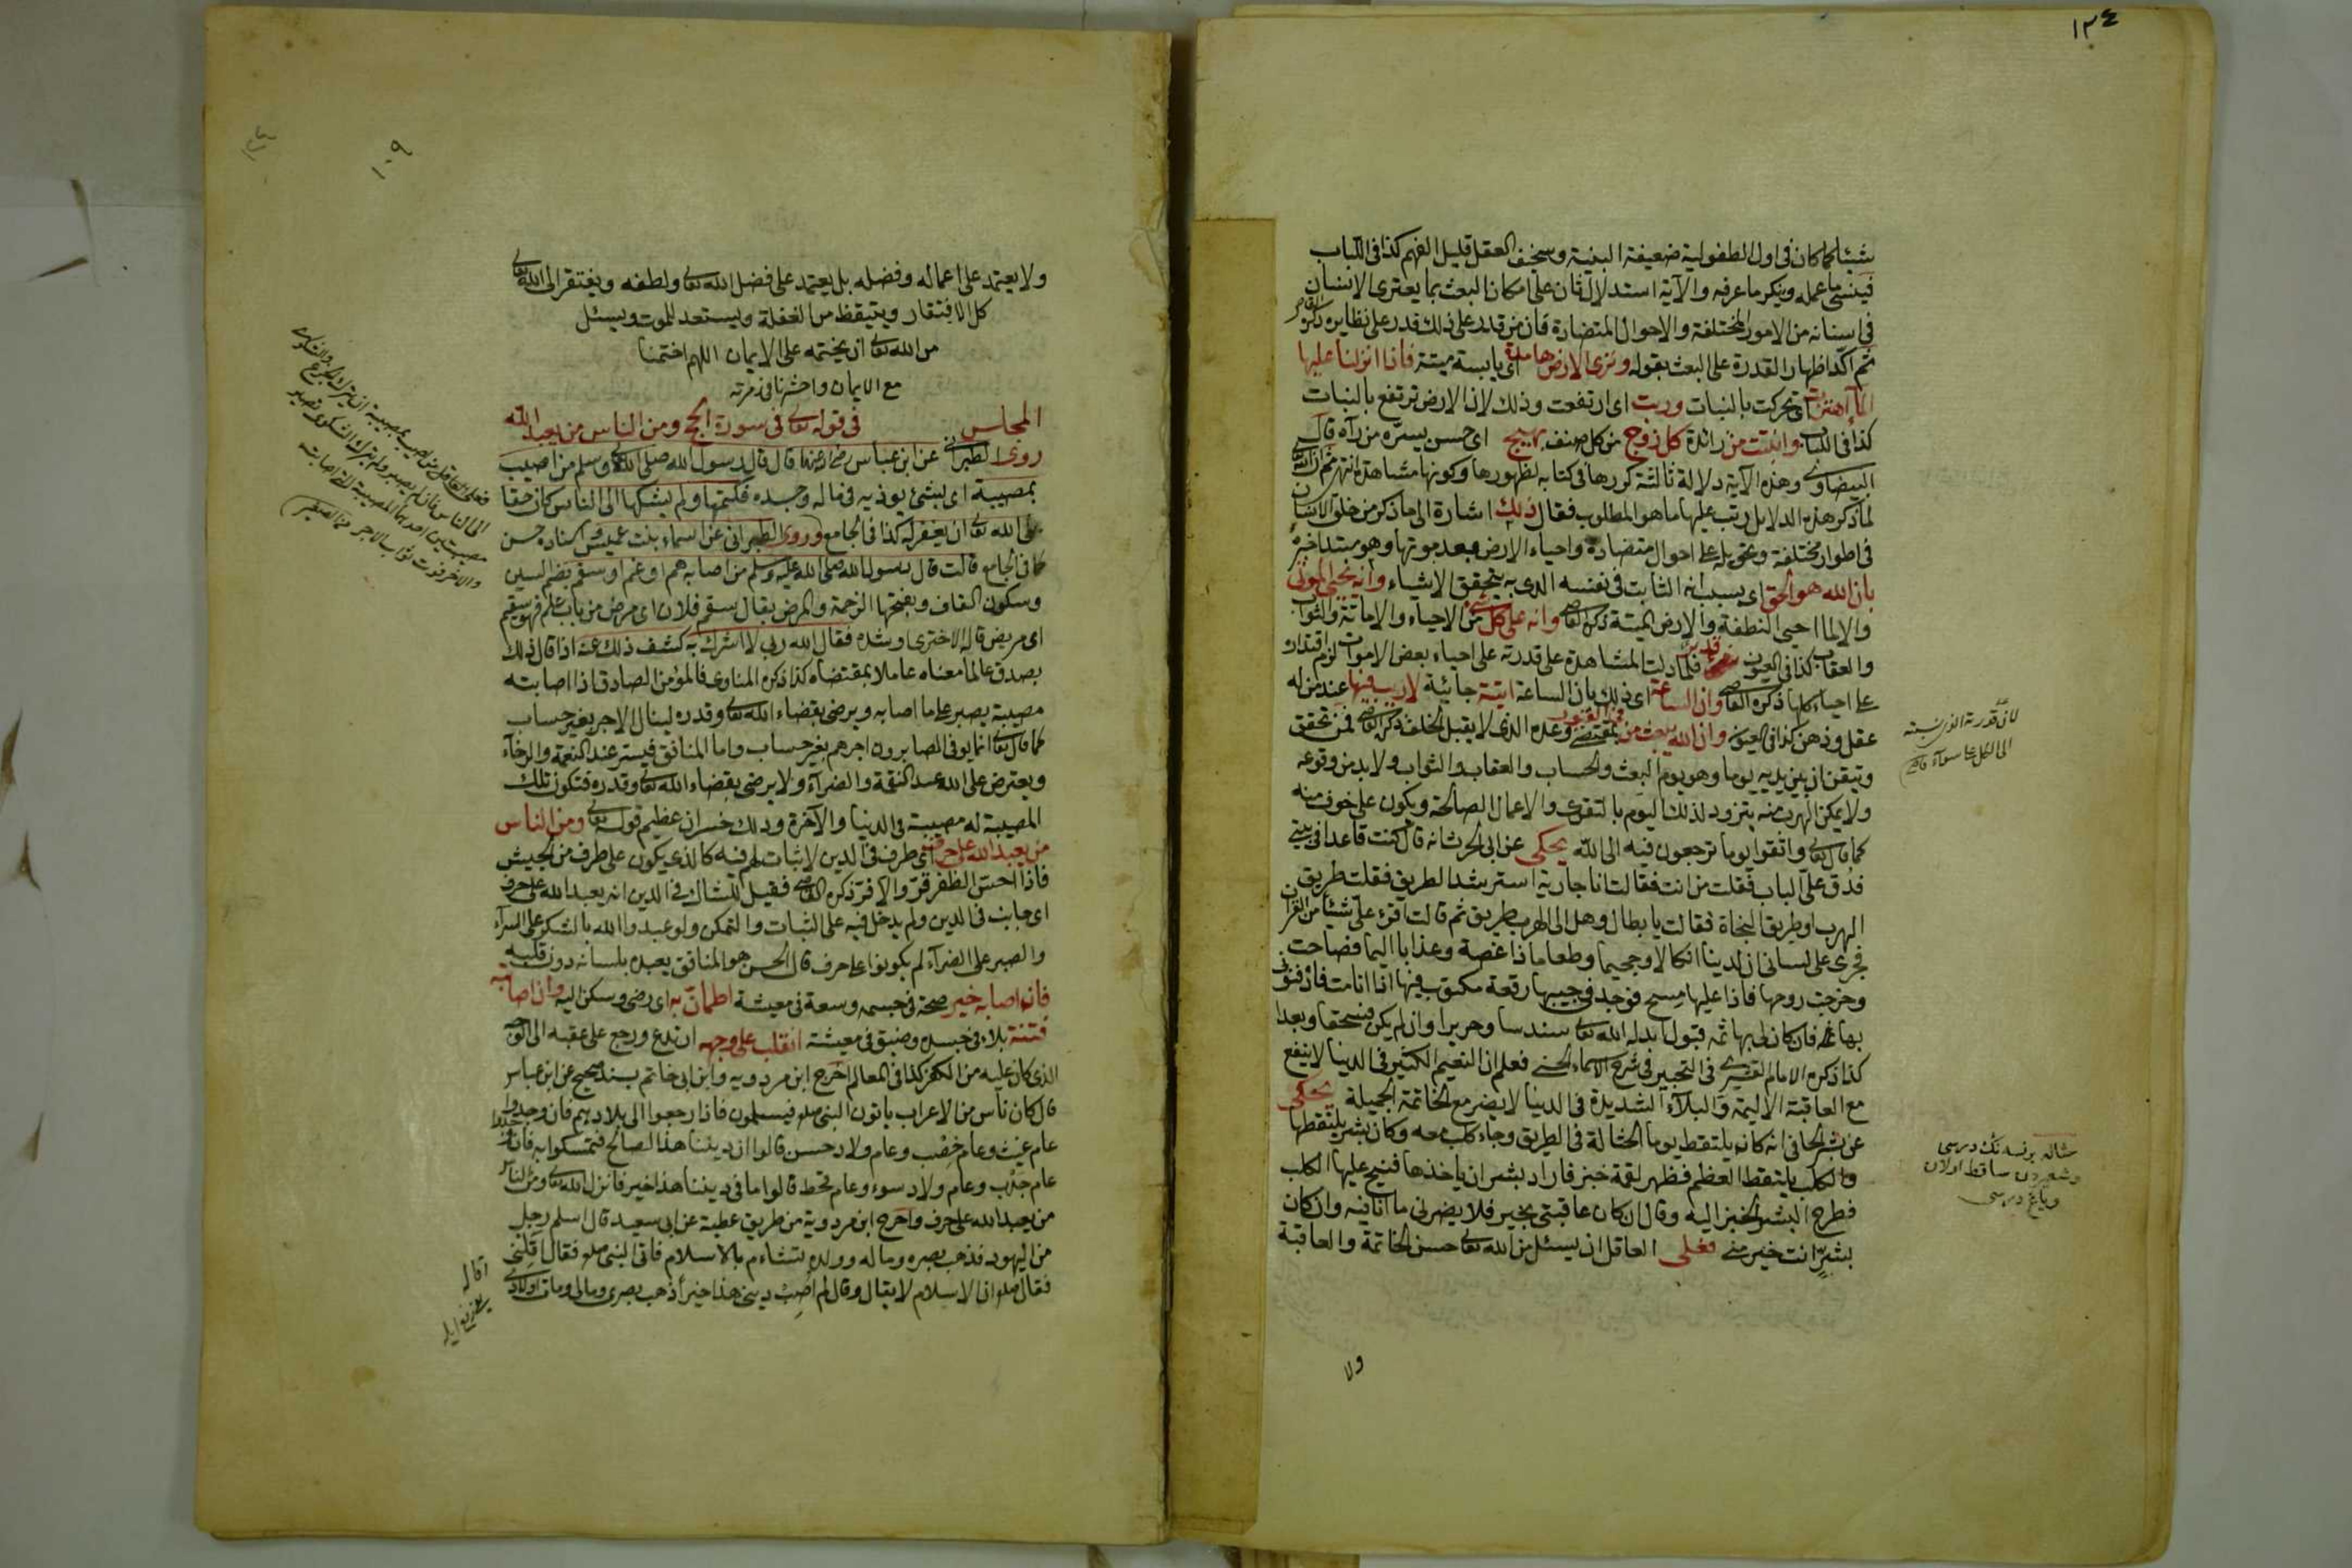 ١٢٤
شيئا كما كان في اول الطفولية ضعيفة البنية وسخيف العقل قليل الفهم كذا في اللباب
فينسى ما عمله وينكر ما عرفه والآية استدلال ثان على امكان البعث بما يعترى الانسان
في اسنانه من الامور المختلفة والاحوال المتضادة فان من قدر على ذلك قدر على نظايره ذكره القاضى
ثم اكد اظهار القدرة على البعث بقوله وترى الارض هامدة اى يابسة ميتة فاذا انزلنا عليها
الماء اهتزت اى تحركت بالنبات وربت اى ارتفعت وذلك لان الارض ترتفع بالنبات
كذا في اللباب وانبتت من زائدة كل زوج من كل صنف بهيج اى حسن يسره من رآه قال
البيضاوى وهذه الآية دلالة ثالثة كررها في كتابه لظهورها وكونها مشاهدة انتهى ثم ان الله
لما ذكر هذه الدلايل رتب عليها ما هو المطلوب فقال ذلك اشارة الى ما ذكر من خلق الانسان
في اطوار مختلفة وتحويله على احوال متضادة واحياء الارض بعد موتها وهو مبتدا خبره
بان الله هو الحق اى بسبب انه الثابت في نفسه الذى به يتحقق الاشياء وانه يحيى الموتى
والا لما احيى النطفة والارض الميتة ذكره القاضى وانه على كل شئ من الاحياء والاماتة والثواب
والعقاب كذا في العيون قدير فلما دلت المشاهدة على قدرته على احياء بعض الاموات لزم اقتداره
على احياء كلها ذكره القاضى وان الساعة اى ذلك بان الساعة آتية جائية لا ريب فيها عند من له
عقل وذهن كذا في العيون وان الله يبعث من في القبور بمقتضى وعده الذى لا يقبل الخلف ذكره القاضى فمن تحقق
وتيقن ان بين يديه يوما وهو يوم البعث والحساب والعقاب والثواب ولا بد من وقوعه
ولا يمكن الهرب منه يتزود لذلك اليوم بالتقوى والاعمال الصالحة ويكون على خوف منه
كما قال تعالى واتقوا يوما ترجعون فيه الى الله يحكى عن ابى الحرث انه قال كنت قاعدا في بيتى
فدق على الباب فقلت من انت فقالت انا جارية استرشد الطريق فقلت طريق
الهرب او طريق النجاة فقالت يا بطال وهل الى الهرب طريق ثم قالت اقرء على شيئا من القرآن
فجرى على لسانى ان لدينا انكالا وجحيما وطعاما ذا غصة وعذابا اليما فصاحت
وخرجت روحها فاذا عليها مسح فوجد في جيبها رقعة مكتوب فيها اذا انا مت فادفنونى
بها فان كان لها ثمه قبول ابدله الله تعالى سندسا وحريرا وان لم يكن فسحقا وبعدا
كذا ذكره الامام القشيرى في التحبير في شرح الاسماء الحسنى فعلم ان النعيم الكثير في الدنيا لا ينفع
مع العاقبة الاليمة والبلاء الشديدة في الدنيا لا يضر مع الخاتمة الجميلة يحكى
عن بشر الحافى انه كان يلتقط يوما الحثالة في الطريق وجاء كلب معه وكان بشر يلتقطها
والكلب يلتقط العظم فظهر لقمة خبز فاراد بشر ان ياخذها فنبح عليها الكلب
فطرح البشر الخبز اليه وقال ان كان عاقبتى بخير فلا يضرنى ما انا فيه وان كان
بشر انت خير منى فعلى العاقل ان يسئل من الله تعالى حسن الخاتمة والعاقبة
ولا
لان قدرة الذى نسبته
الى الكل على سواء قاضى
حثاله برنسه نك درسى
وشعيردن ساقط اولان
وياغ درسى
١٠٩
ولا يعتمد على اعماله وفضله بل يعتمد على فضل الله تعالى ولطفه ويفتقر الى الله تعالى
كل الافتقار ويتيقظ من الغفلة ويستعد للموت ويسئل
من الله تعالى ان يختمه على الايمان اللهم اختمنا
مع الايمان واحشرنا في زمرته
المجلس في قوله تعالى في سورة الحج ومن الناس من يعبد الله
روى الطبرانى عن ابن عباس رضى الله عنهما قال قال رسول الله صلى الله عليه وسلم من اصيب
بمصيبة اى بشئ يوذيه في ماله وجسده فكتمها ولم يشكها الى الناس كان حقا
على الله تعالى ان يغفر له كذا في الجامع وروى الطبرانى عن اسماء بنت عميس اسناده حسن
كما في الجامع قالت قال رسول الله صلى الله عليه وسلم من اصابه هم او غم او سقم بضم السين
وسكون القاف وبفتحها الزحمة والمرض يقال سقم فلان اى مرض من باب علم فهو سقيم
اى مريض قاله الاخترى او شدة فقال الله ربى لا اشرك به كشف ذلك عنه اذا قال ذلك
بصدق عالما معناه عاملا بمقتضاه كذا ذكره المناوى فالمؤمن الصادق اذا اصابته
مصيبة يصبر على ما اصابه ويرضى بقضاء الله تعالى وقدره لينال الاجر بغير حساب
كما قال تعالى انما يوفى الصابرون اجرهم بغير حساب واما المنافق فيستر عند النعمة والرخآء
ويعترض على الله عند النقمة والضرآء ولا يرضى بقضاء الله تعالى وقدره فتكون تلك
المصيبة له مصيبة في الدنيا والآخرة وذلك خسران عظيم قوله تعالى ومن الناس
من يعبد الله على حرف اى طرف في الدين لا ثبات لهم فيه كالذى يكون على طرف من الجيش
فاذا احس الظفر قر والا فر ذكره القاضى فقيل للشاك في الدين انه يعبد الله على حرف
اى جانب في الدين ولم يدخل فيه على الثبات والتمكن ولو عبدوا الله بالشكر على السرآء
والصبر على الضرآء لم يكونوا على حرف قال الحسن هو المنافق يعبده بلسانه دون قلبه
فان اصابه خير صحة في جسمه وسعة في معيشة اطمأن به اى رضى وسكن اليه وان اصابته
فتنة بلاء في جسده وضيق في معيشة انقلب على وجهه ارتدع ورجع على عقبه الى الوجه
الذى كان عليه من الكفر كذا في المعالم اخرج ابن مردويه وابن ابى حاتم بسند صحيح عن ابن عباس
قال كان ناس من الاعراب ياتون النبى صلعم فيسلمون فاذا رجعوا الى بلادهم فان وجدوا
عام غيث وعام خصب وعام ولاد حسن قالوا ان ديننا هذا الصالح فتمسكوا به فان وجدوا
عام جدب وعام ولاد سوء وعام قحط قالوا ما في ديننا هذا خير فانزل الله تعالى ومن الناس
من يعبد الله على حرف واخرج ابن مردويه من طريق عطية عن ابى سعيد قال اسلم رجل
من اليهود فذهب بصره وماله وولده تشاءم بالاسلام فاتى النبى صلعم فقال اقلنى
فقال صلعم ان الاسلام لا يقال وقال لم اصب دينى هذا خيرا ذهب بصرى ومالى ومات اولادى
فعلى العاقل من اصيب بمصيبة ان
الى الناس فان لم يصبر ولم يترك الشكوى تصير
مصيبتين احديهما المصيبة التى اصابته
والاخر فوت ثواب الاجر
اقاله